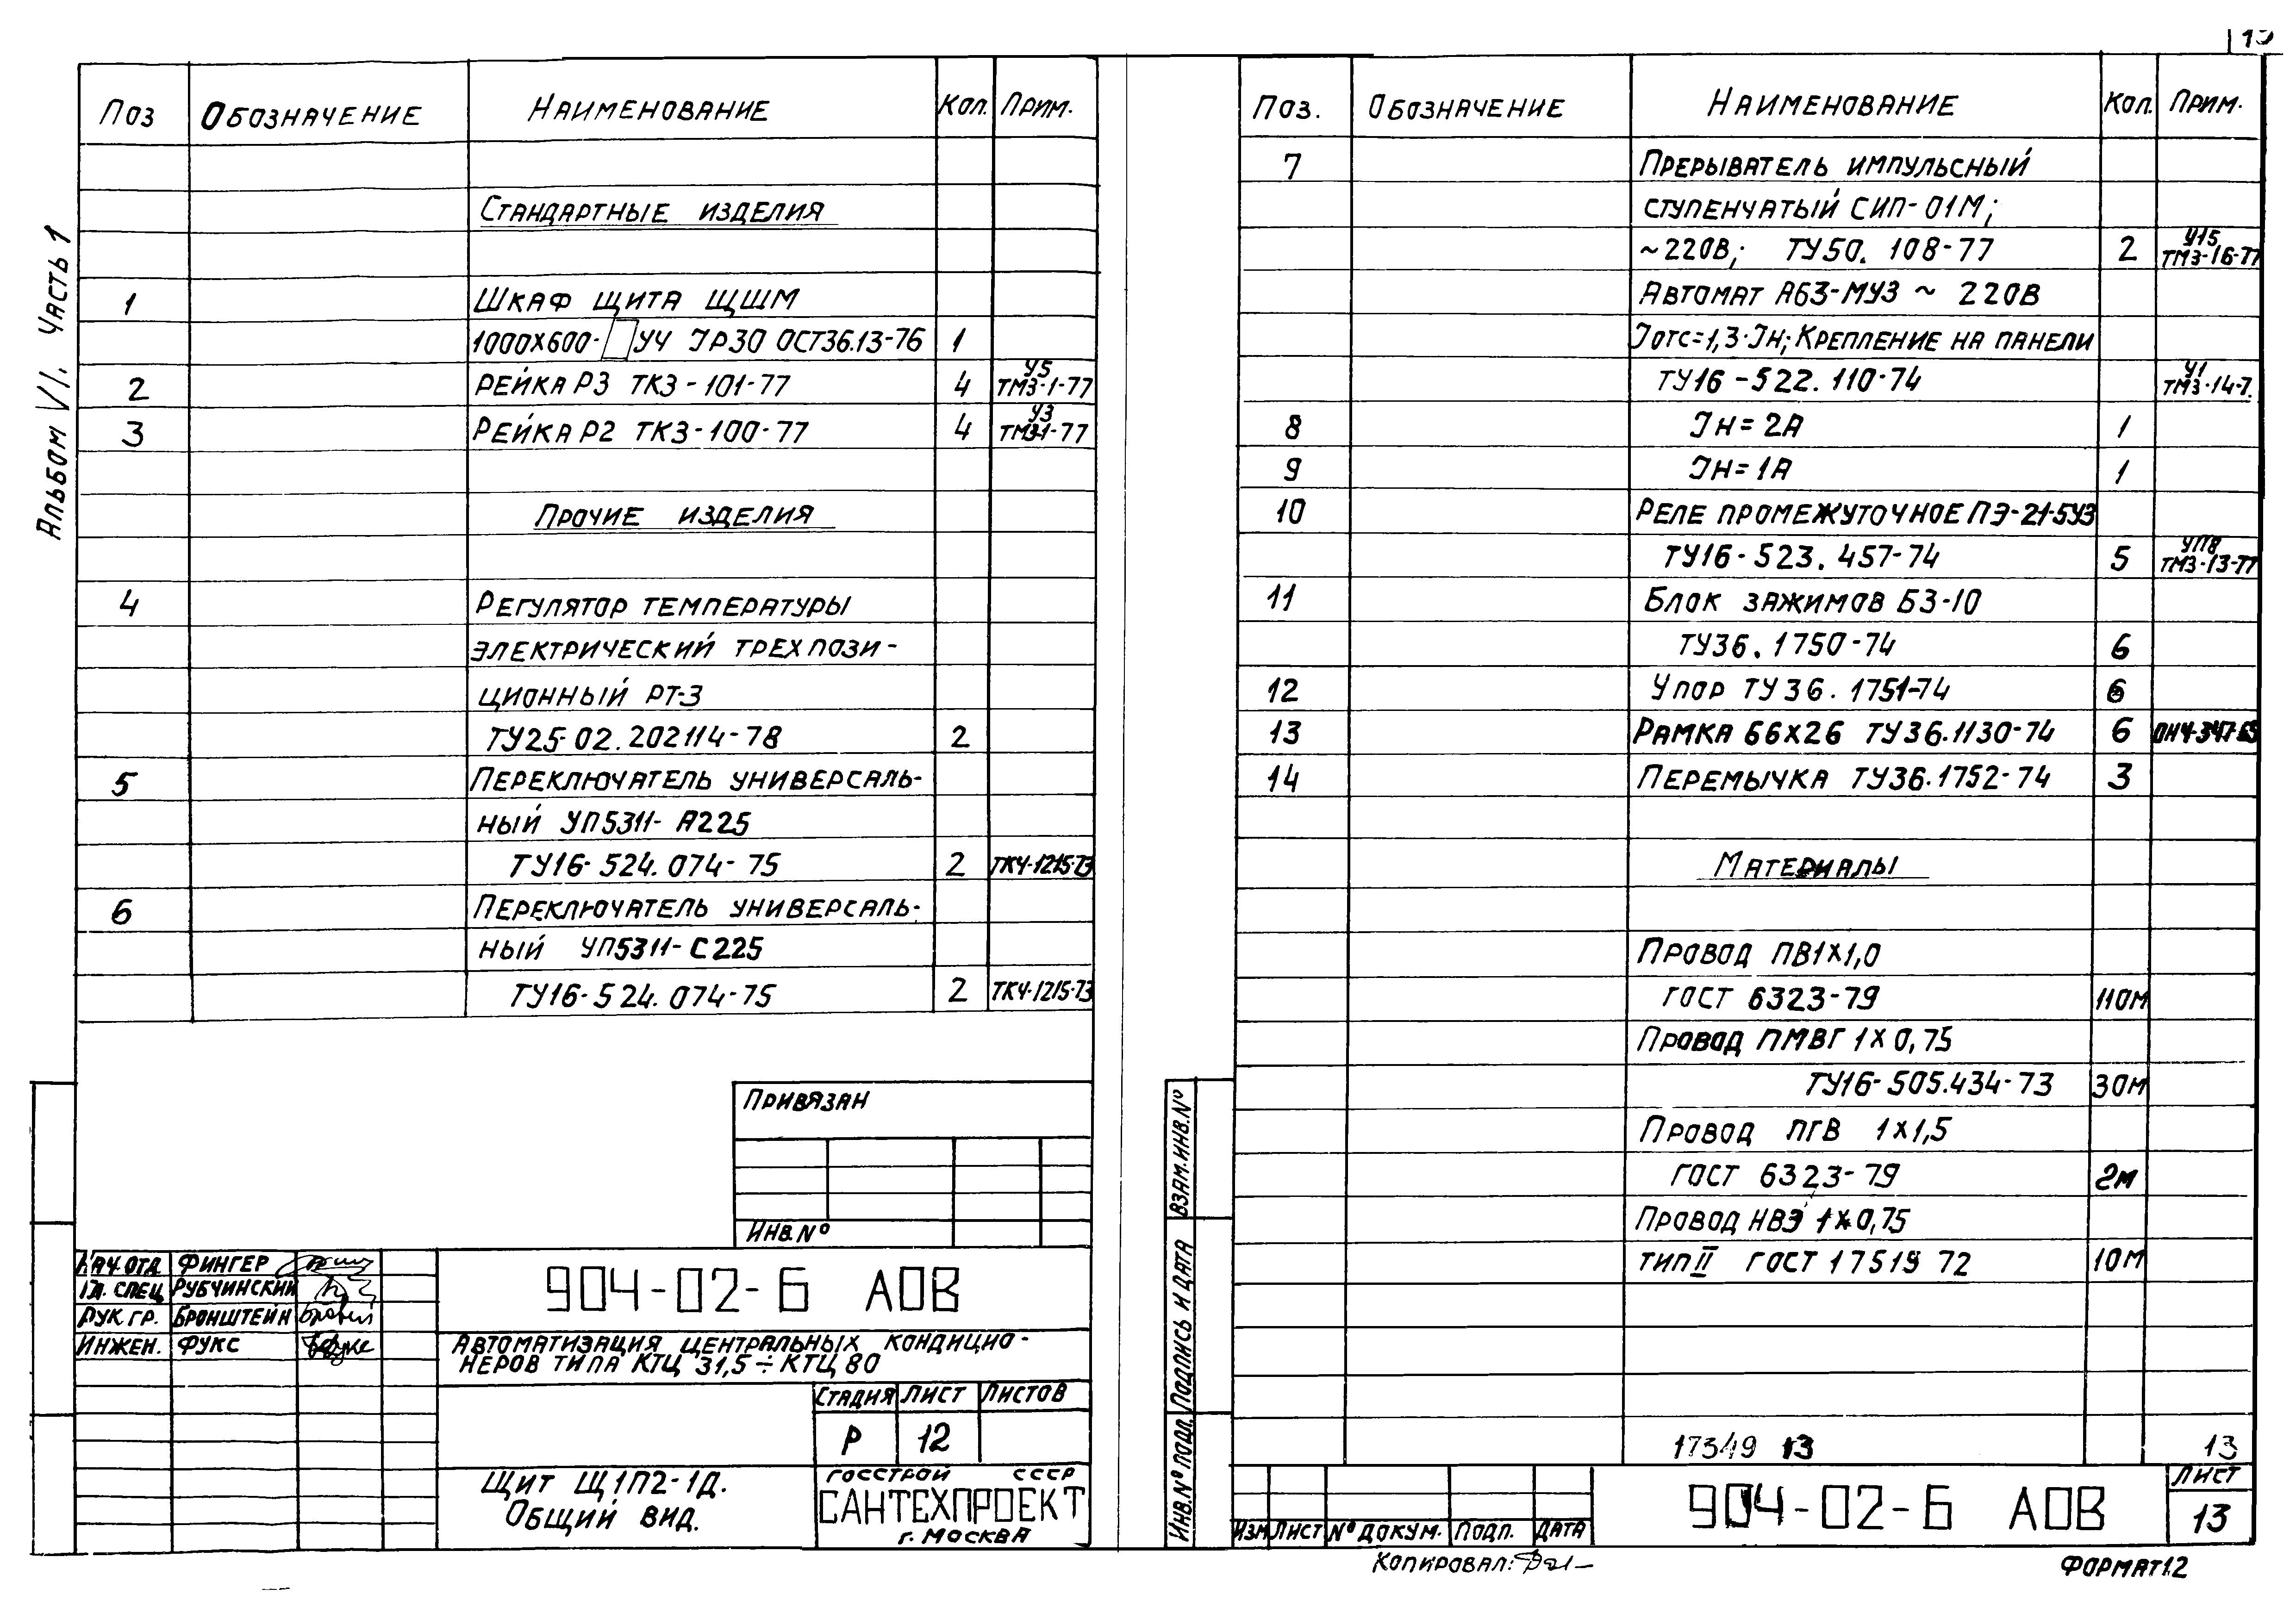 Альбом VI. Часть 1
Поз Обозначение Наименование Кол. Прим.
Стандартные изделия
1 Шкаф щита ЩШМ
1000х600- УЧ IP30 ОСТ36.13-76 1
2 Рейка Р3 ТК3-101-77 4 У5 ТМ3-1-77
3 Рейка Р2 ТК3-100-77 4 У3 ТМ3-1-77
Прочие изделия
4 Регулятор температуры
электрический трехпози-
ционный РТ-3
ТУ25-02.202114-78 2
5 Переключатель универсаль-
ный УП5311-А225
ТУ16-524.074-75 2 ТК4-1215-73
6 Переключатель универсаль-
ный УП5311-С225
ТУ16-524.074-75 2 ТК4-1215-73
Привязан
Инв.№
Нач.отд Фингер
Гл. спец Рубчинский
Рук.гр. Бронштейн
Инжен. Фукс
904-02-6 АОВ
Автоматизация центральных кондицио-
неров типа КТЦ 31,5÷КТЦ 80
Стадия Лист Листов
Р 12
Щит Щ1П2-1Д.
Общий вид.
Госстрой СССР
САНТЕХПРОЕКТ
г. Москва
Поз. Обозначение Наименование Кол. Прим.
7 Прерыватель импульсный
ступенчатый СИП-01М;
~220В; ТУ50.108-77 2 У15 ТМ3-16-77
Автомат А63-МУ3 ~ 220В
Iотс=1,3·Iн; Крепление на панели
ТУ16-522.110-74 У1 ТМ3-14-7.
8 Iн=2А 1
9 Iн=1А 1
10 Реле промежуточное ПЭ-21-5У3
ТУ16-523.457-74 5 УП8 ТМ3-13-77
11 Блок зажимов БЗ-10
ТУ36.1750-74 6
12 Упор ТУ36.1751-74 6
13 Рамка 66х26 ТУ36.1130-74 6
14 Перемычка ТУ36.1752-74 3
Материалы
Провод ПВ1х1,0
ГОСТ 6323-79 110м
Провод ПМВГ 1х0,75
ТУ16-505.434-73 30м
Провод ПГВ 1х1,5
ГОСТ 6323-79 2м
Провод НВЭ 1х0,75
тип II ГОСТ 17519 72 10м
17349 13 13
Взам.инв.№
Подпись и дата
Инв.№ подл.
Изм Лист № докум. Подп. Дата
904-02-6 АОВ
Лист
13
Копировал:
Формат12